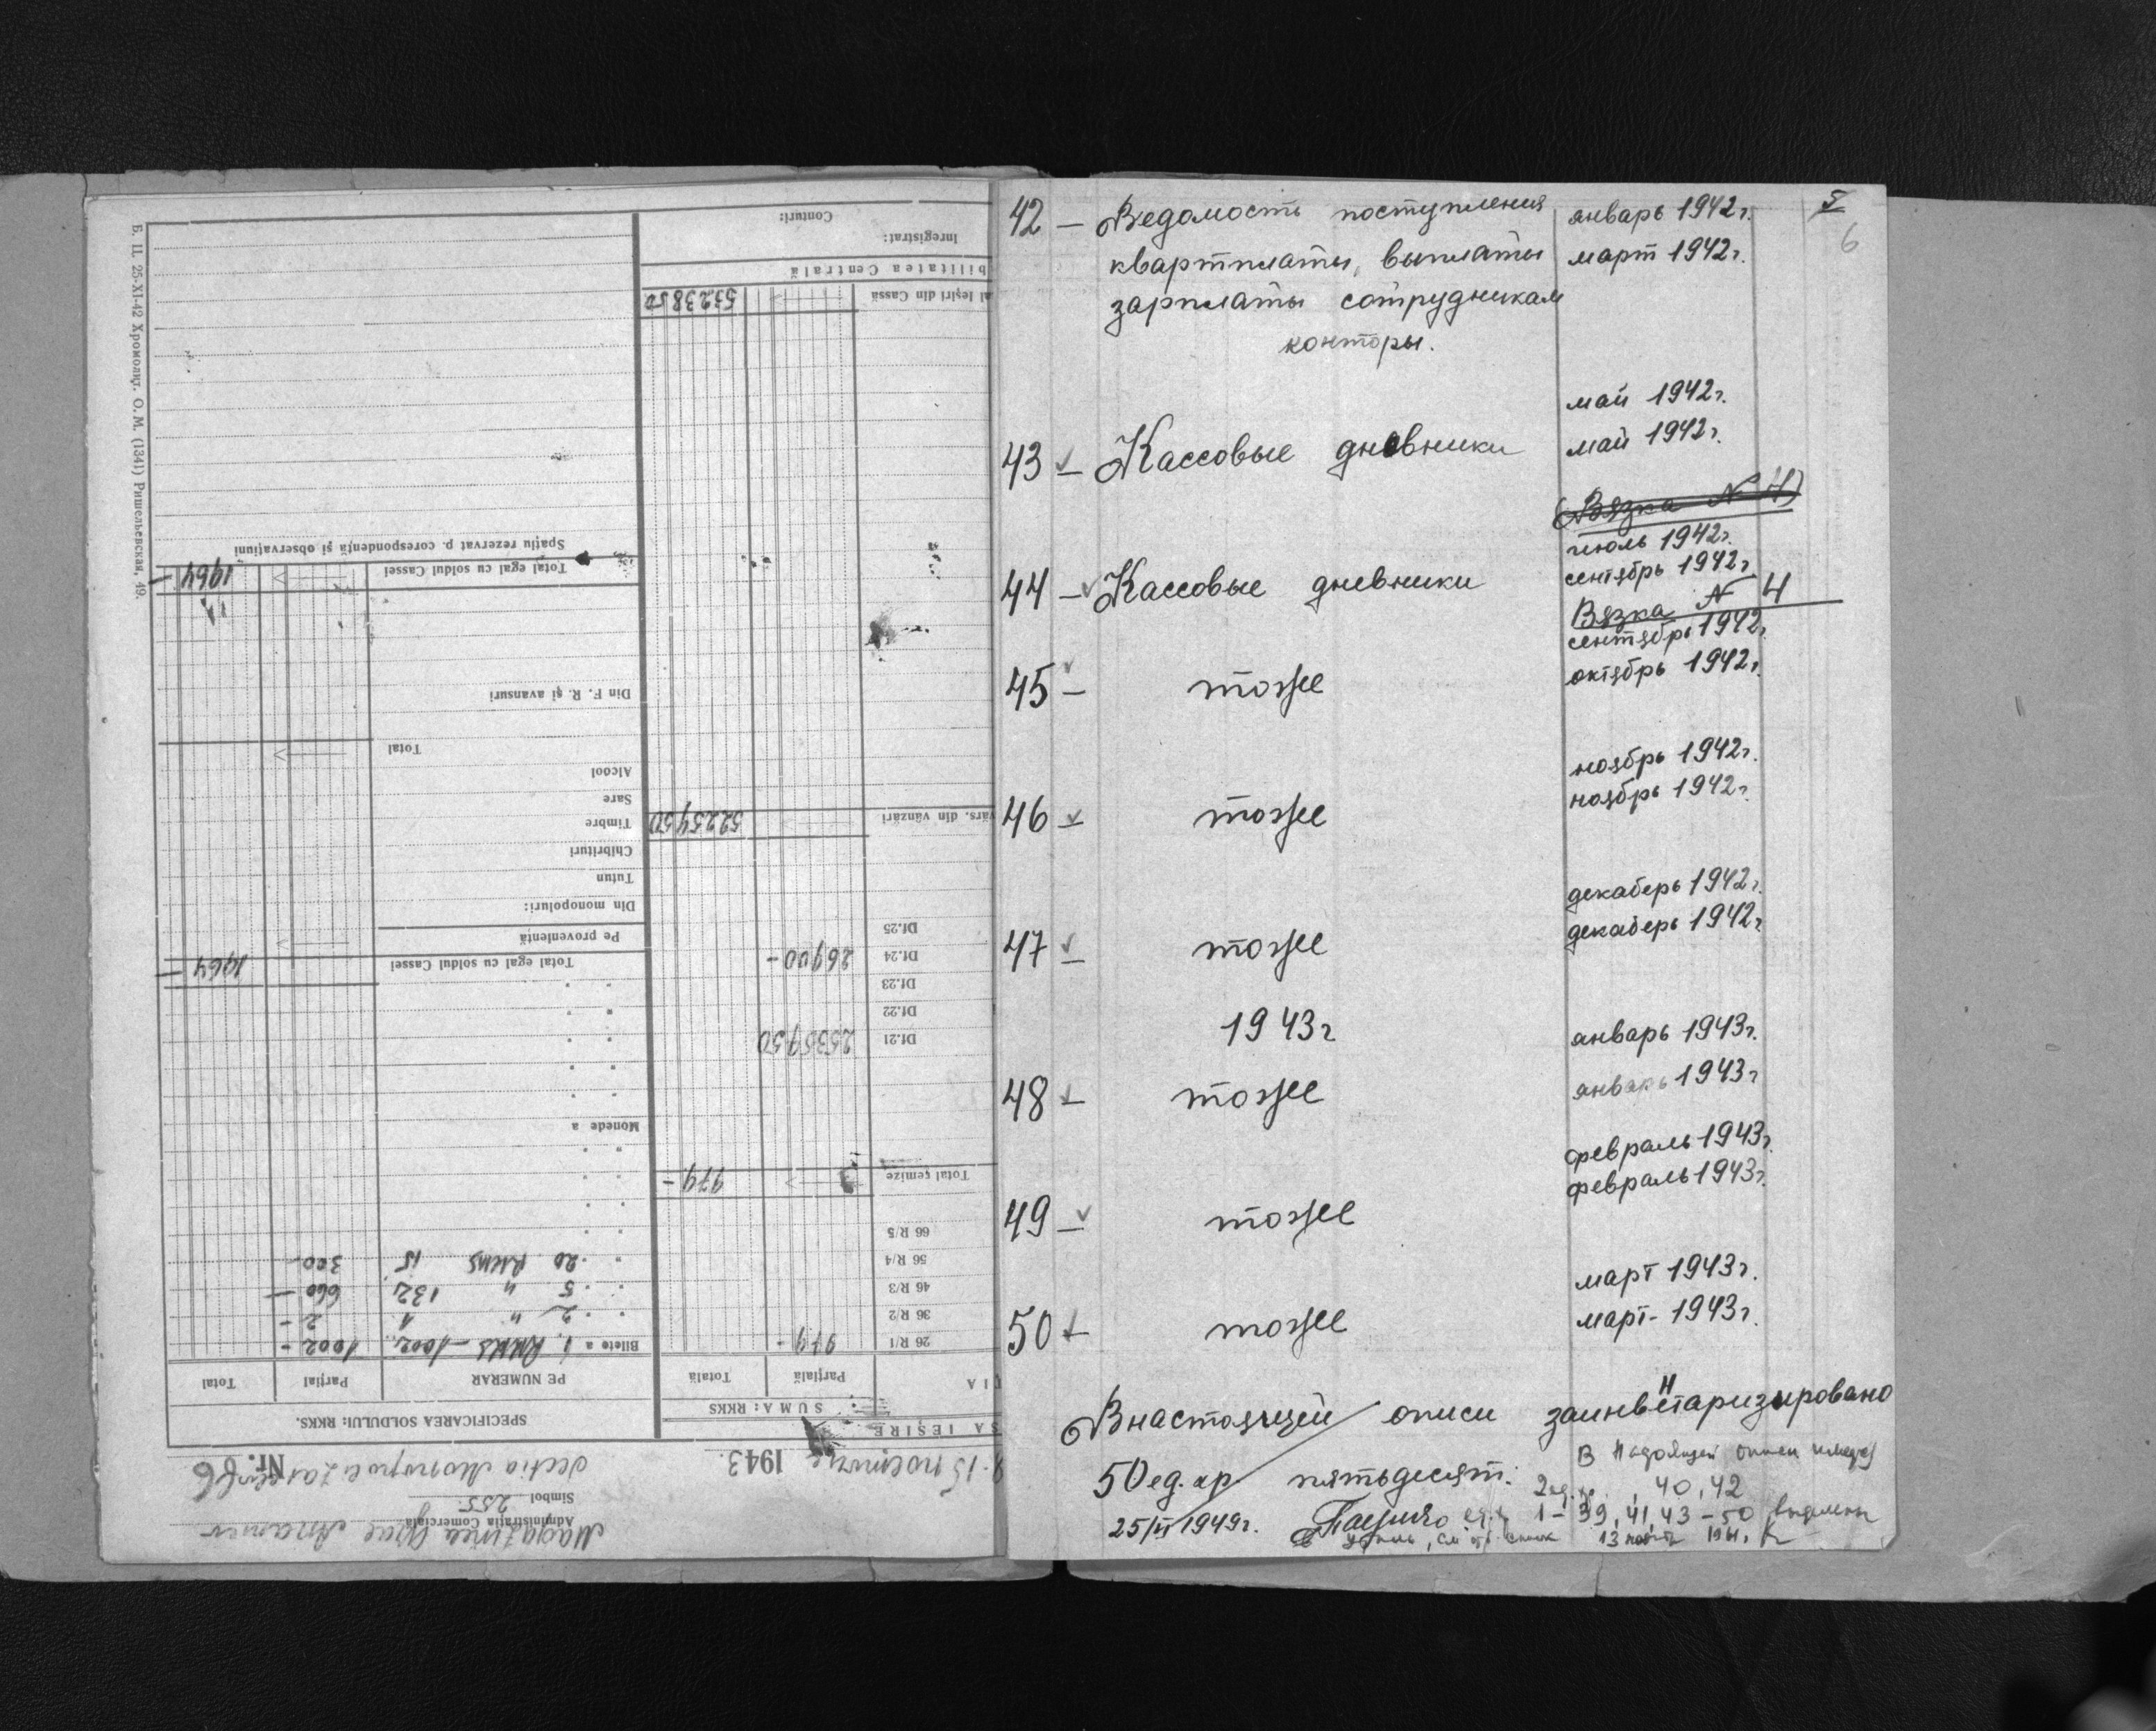 Б. Ц. 25-XI-42 Хромолит. О. М. (1341) Ришельевская, 49.
Administrația Comercială
Simbol 255
Nr. 86
1943.
SA IEȘIRE
SUMA: RKKS
Parțială
Totală
26 R/1 979 -
36 R/2
46 R/3
56 R/4
66 R/5
Total
979 -
Df.21 2535950
Df.22
Df.23
Df.24 26900 -
Df.25
vărs. din vânzări 5225950
al Ieșiri din Cassă 5323850
bilitatea Centrală
Inregistrat:
Conturi:
SPECIFICAREA SOLDULUI: RKKS.
PE NUMERAR
Parțial
Total
Bilete a 1 RKKS - 1002 1002 -
" 2 " 1 2 -
" 5 " 132 660 -
" 20 RKKS 15 300 -
Monede a
Total egal cu soldul Cassei 1964 -
Pe proveniență
Din monopoluri:
Tutun
Chibrituri
Timbre
Sare
Alcool
Total
Din F. R. și avansuri
Total egal cu soldul Cassei 1964 -
Spațiu rezervat p. corespondență și observațiuni
5
6
42 - Ведомость поступления январь 1942 г.
квартплаты, выплаты март 1942 г.
зарплаты сотрудникам
конторы.
май 1942 г.
43 - Кассовые дневники май 1942 г.
(Вязка № 4)
июль 1942 г.
44 - Кассовые дневники сентябрь 1942 г.
Вязка № 4
сентябрь 1942 г.
45 - тоже октябрь 1942 г.
ноябрь 1942 г.
46 - тоже ноябрь 1942 г.
декаберь 1942 г.
47 - тоже декаберь 1942 г.
1943 г январь 1943 г.
48 - тоже январь 1943 г
февраль 1943 г.
49 - тоже февраль 1943 г.
март 1943 г.
50 - тоже март - 1943 г.
В настоящей описи заинвентаризировано
50 ед. хр пятьдесят.
В настоящей описи
40, 42
25/VI 1949 г.
1 - 39, 41, 43 - 50
13 1961.